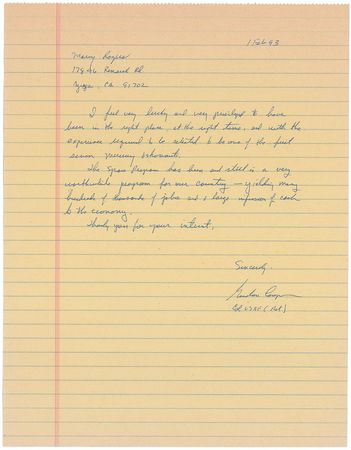 1 Feb 93
Marcy Rogers
Rd.
CA 91702
I feel very lucky and very privileged to have
been in the right place, at the right time, and with the
experience required to be selected to be one of the first
seven Mercury Astronauts.
The Space Program has been and still is a very
worthwhile program for our country – yielding many
hundreds of thousands of jobs and a large infusion of cash
to the economy.
Thank you for your interest,
Sincerely,
Gordon Cooper
Col USAF (Ret.)